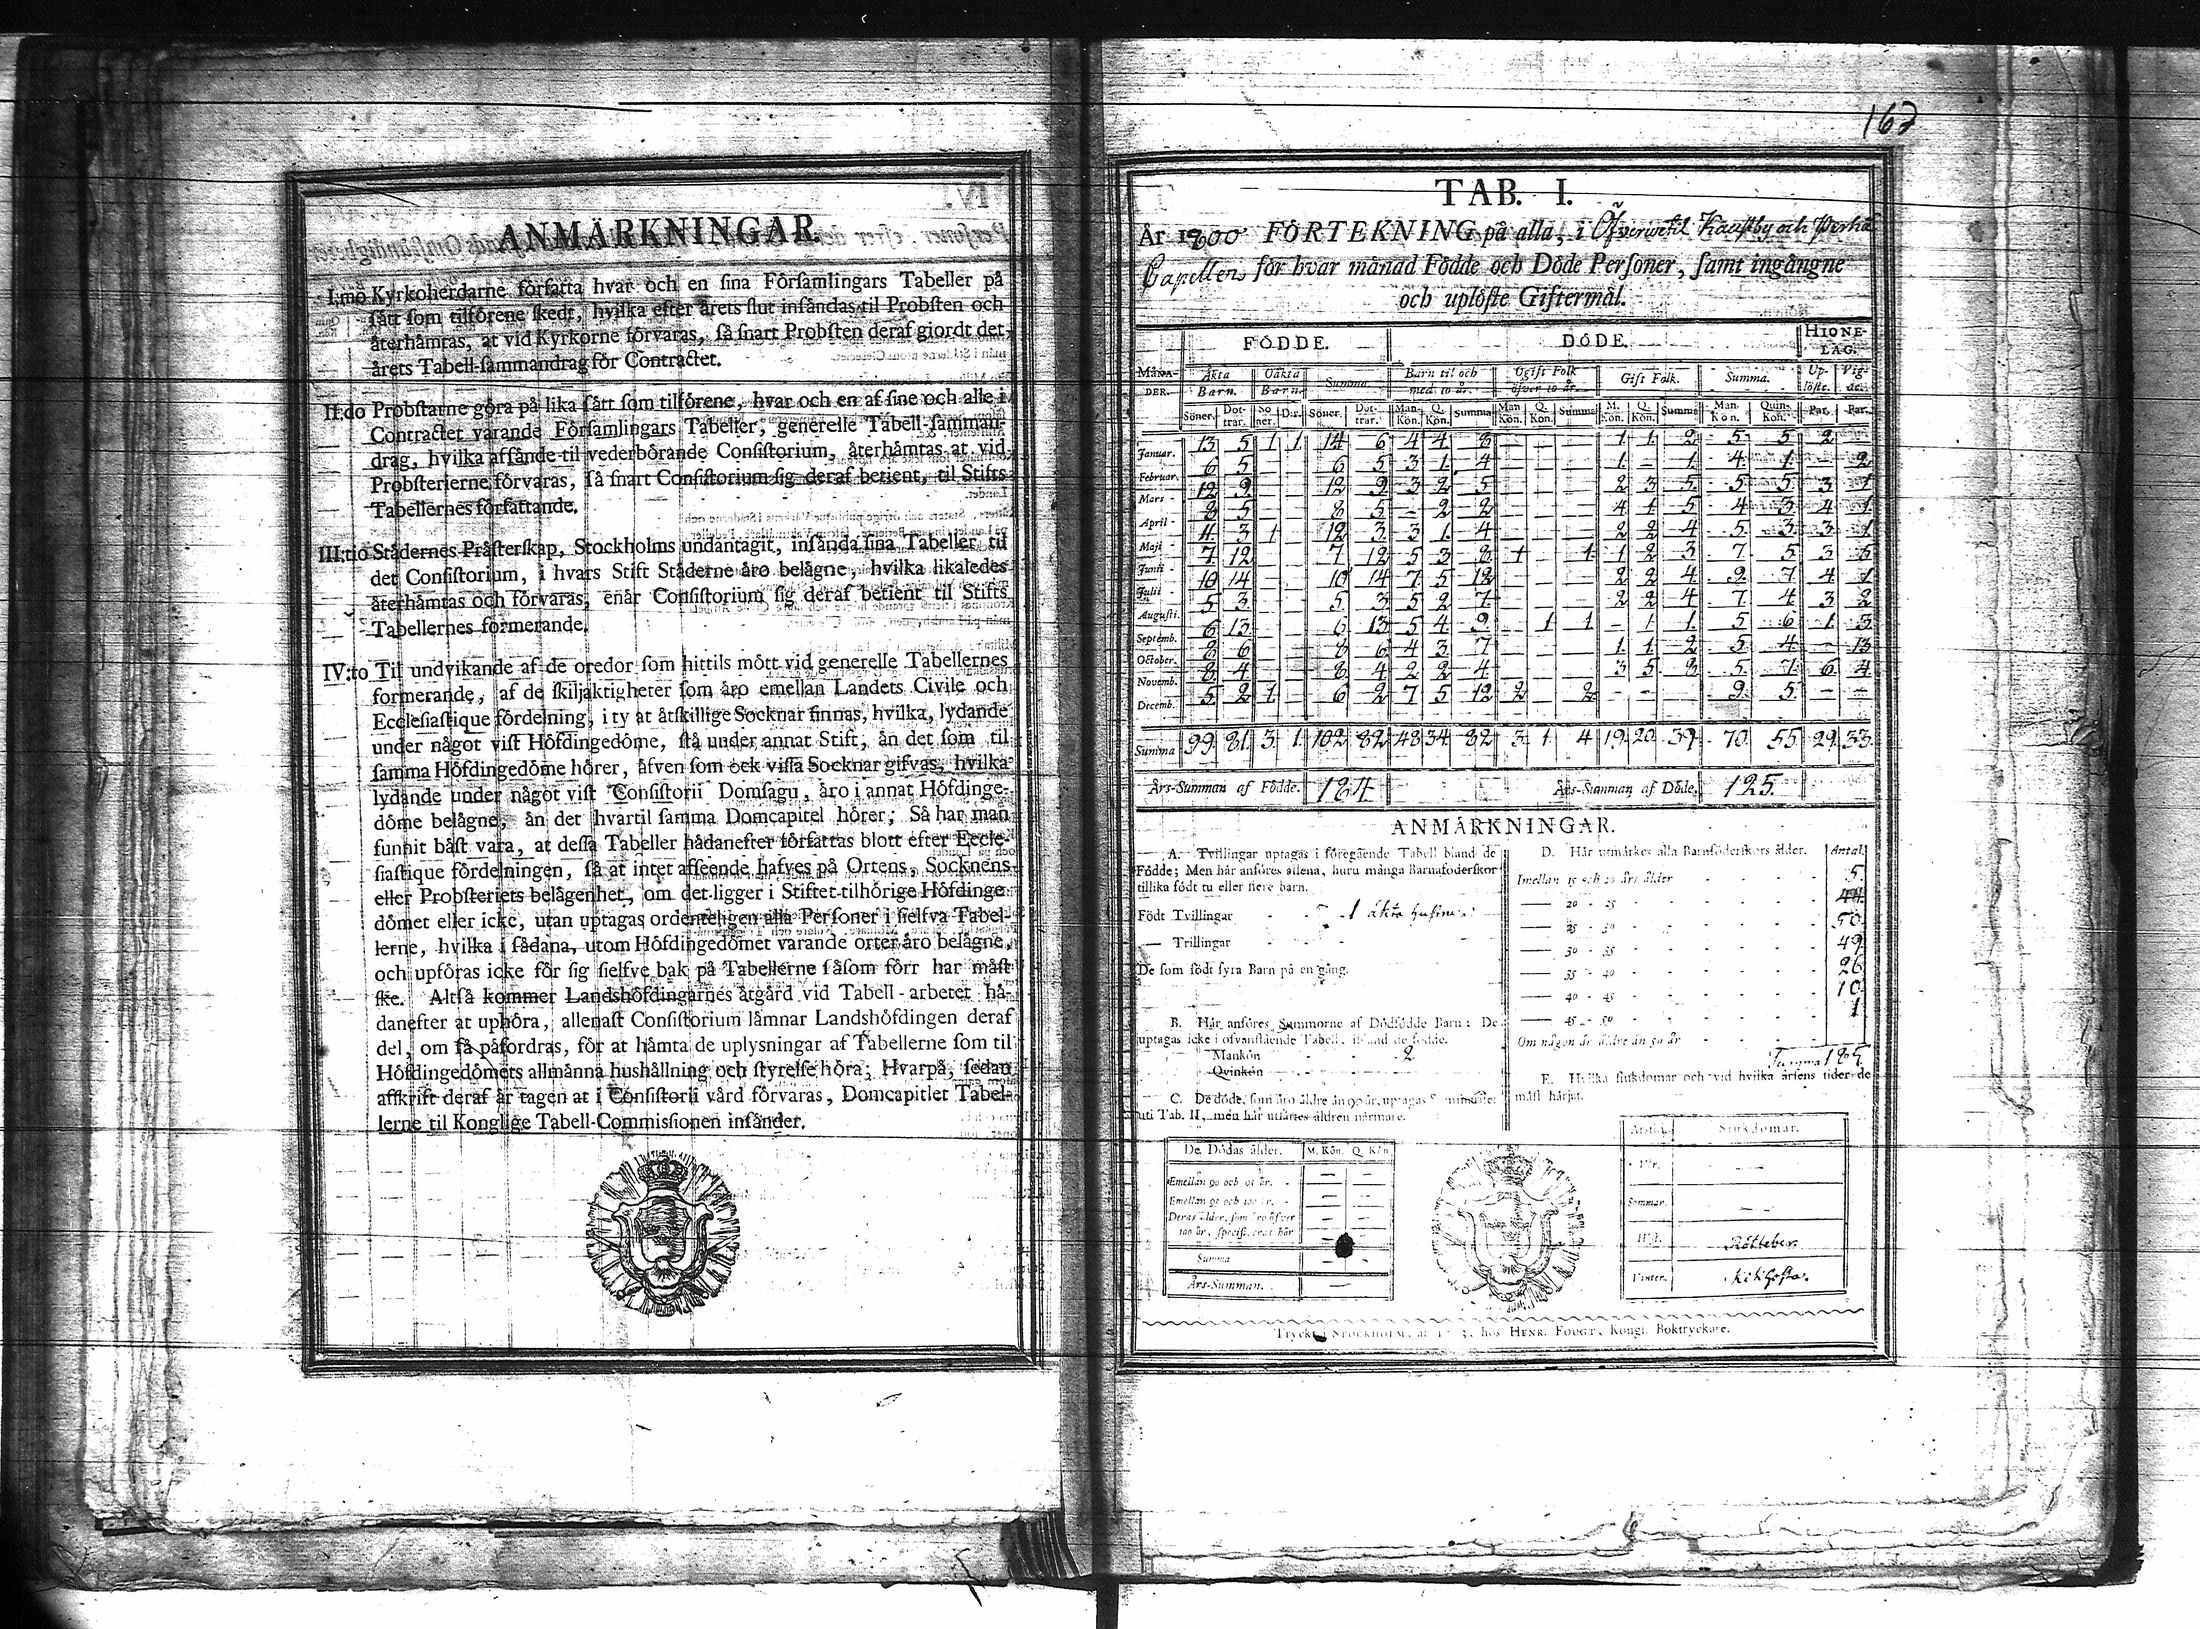 ANMÄRKNINGAR.
I:mo Kyrkoherdarne författa hvar och en sina Församlingars Tabeller på
sätt som tilförene skedt, hvilka efter årets slut insändas til Probsten och
återhämtas, at vid Kyrkorne förvaras, så snart Probsten deraf giordt det
årets Tabell-sammandrag för Contractet.
II:do Probstarne göra på lika sätt som tilförene, hvar och en af sine och alle i
Contractet varande Församlingars Tabeller, generelle Tabell-samman-
drag, hvilka afsände til vederbörande Consistorium, återhämtas at vid
Probsterierne förvaras, så snart Consistorium sig deraf betient, til Stifts
Tabellernes författande.
III:tio Städernes Prästerskap, Stockholms undantagit, insända sina Tabeller til
det Consistorium, i hvars Stift Städerne äro belägne, hvilka likaledes
återhämtas och förvaras, enär Consistorium sig deraf betient til Stifts
Tabellernes formerande.
IV:to Til undvikande af de oredor som hittils mött vid generelle Tabellernes
formerande, af de skiljaktigheter som äro emellan Landets Civile och
Ecclesiastique fördelning, i ty at åtskillige Socknar finnas, hvilka, lydande
under något vist Höfdingedöme, stå under annat Stift, än det som til
samma Höfdingedöme hörer, äfven som ock vissa Socknar gifvas, hvilka
lydande under något vist Consistorii Domsagu, äro i annat Höfdinge-
döme belägne, än det hvartil samma Domcapitel hörer; Så har man
funnit bäst vara, at dessa Tabeller hädanefter författas blott efter Eccle-
siastique fördelningen, så at intet afseende hafves på Ortens, Socknens
eller Probsteriets belägenhet, om det ligger i Stiftet tilhörige Höfdinge
dömet eller icke, utan uptagas ordenteligen alla Personer i sielfva Tabel-
lerne, hvilka i sådana, utom Höfdingedömet varande orter äro belägne,
och upföras icke för sig sielfve bak på Tabellerne såsom förr har måst
ske. Altså kommer Landshöfdingarnes åtgärd vid Tabell-arbetet hä-
danefter at uphöra, allenast Consistorium lämnar Landshöfdingen deraf
del, om så påfordras, för at hämta de uplysningar af Tabellerne som til
Höfdingedömets allmänna hushållning och styrelse höra; Hvarpå, sedan
afskrift deraf är tagen at i Consistorii vård förvaras, Domcapitlet Tabel-
lerne til Konglige Tabell-Commissionen insänder.
162
TAB. I.
År 1800 FÖRTEKNING på alla, i Öfwerwetil Kaustby och Perho
Capellen för hvar månad Födde och Döde Personer, samt ingångne
och uplöste Giftermål.
FÖDDE. DÖDE. HIONE-LAG.
MÅNA-DER. Äkta Barn. Oäkta Barn. Summa. Barn til och med 10 år. Ogift Folk öfver 10 år. Gift Folk. Summa. Up-löste. Vig-de.
Söner. Dot-trar. So ner. D:r. Söner. Dot-trar. Man-Kön. Q. Kön. Summa Man Kön. Q. Kön. Summa M. Kön. Q. Kön. Summa Man. Kön. Quin-Kön. Par. Par.
Januar. 13 5 1 1 14 6 4 4 8 — — — 1 1 2 5 5 2
Februar. 6 5 — — 6 5 3 1 4 — — — 1 — 1 4 1 — 2
Mars - 12 9 — — 12 9 3 2 5 — — — 2 3 5 5 5 3 1
April - 8 5 — — 8 5 — 2 2 — — — 4 1 5 4 3 4 1
Maji 11 3 1 — 12 3 3 1 4 — — — 2 2 4 5 3 3 1
Junii - 7 12 — — 7 12 5 3 8 1 — 1 1 2 3 7 5 3 5
Julii - 10 14 — — 10 14 7 5 12 — — — 2 2 4 9 7 4 1
Augusti. 5 3 — — 5 3 5 2 7 — — — 2 2 4 7 4 3 2
Septemb. 6 13 — — 6 13 5 4 9 — 1 1 — 1 1 5 6 1 3
October. 8 6 — — 8 6 4 3 7 — — — 1 1 2 5 4 — 13
Novemb. 8 4 — — 8 4 2 2 4 — — — 3 5 8 5 7 6 4
Decemb. 5 2 1 — 6 2 7 5 12 2 — 2 — — — 9 5 — —
Summa 99 81 3 1 102 82 48 34 82 3 1 4 19 20 39 70 55 29 33
Års-Summan af Födde. 184 Års-Summan af Döde. 125
ANMÄRKNINGAR.
A. Tvillingar uptagas i föregående Tabell bland de
Födde; Men här anföres allena, huru många Barnaföderskor
tillika födt tu eller flere barn.
Födt Tvillingar - - 1 äkta hustru
— Trillingar - -
De som födt fyra Barn på en gång.
B. Här anföres Summorne af Dödfödde Barn: De
uptagas icke i ofvanstående Tabell, ibland de födde.
Mankön - - 2
Qvinkön - -
C. De döde, som äro äldre än 90 år, uptagas
uti Tab. II, men här utsättes åldren närmare.
De Dödas ålder. M. Kön. Q. Kön
Emellan 90 och 95 år. - — —
Emellan 95 och 100 år. - — —
Deras ålder, som äro öfver — —
100 år, specificerat här —
Summa — -
Års-Summan. —
D. Här utmärkes alla Barnföderskors ålder. Antal.
Imellan 15 och 20 års ålder - 5
— 20 - 25 - 44
— 25 - 30 - 50
— 30 - 35 - 49
— 35 - 40 - 26
— 40 - 45 - 10
— 45 - 50 - 1
Om någon är äldre än 50 år
Summa 185
E. Hvilka siukdomar och vid hvilka årsens tider de
mäst härjat.
Årstid. Siukdomar.
Vår. —
Sommar. —
Höst. Rötfeber.
Vinter. Kikhosta.
Tryckt i STOCKHOLM, hos HENR. FOUGT, Kongl. Boktryckare.